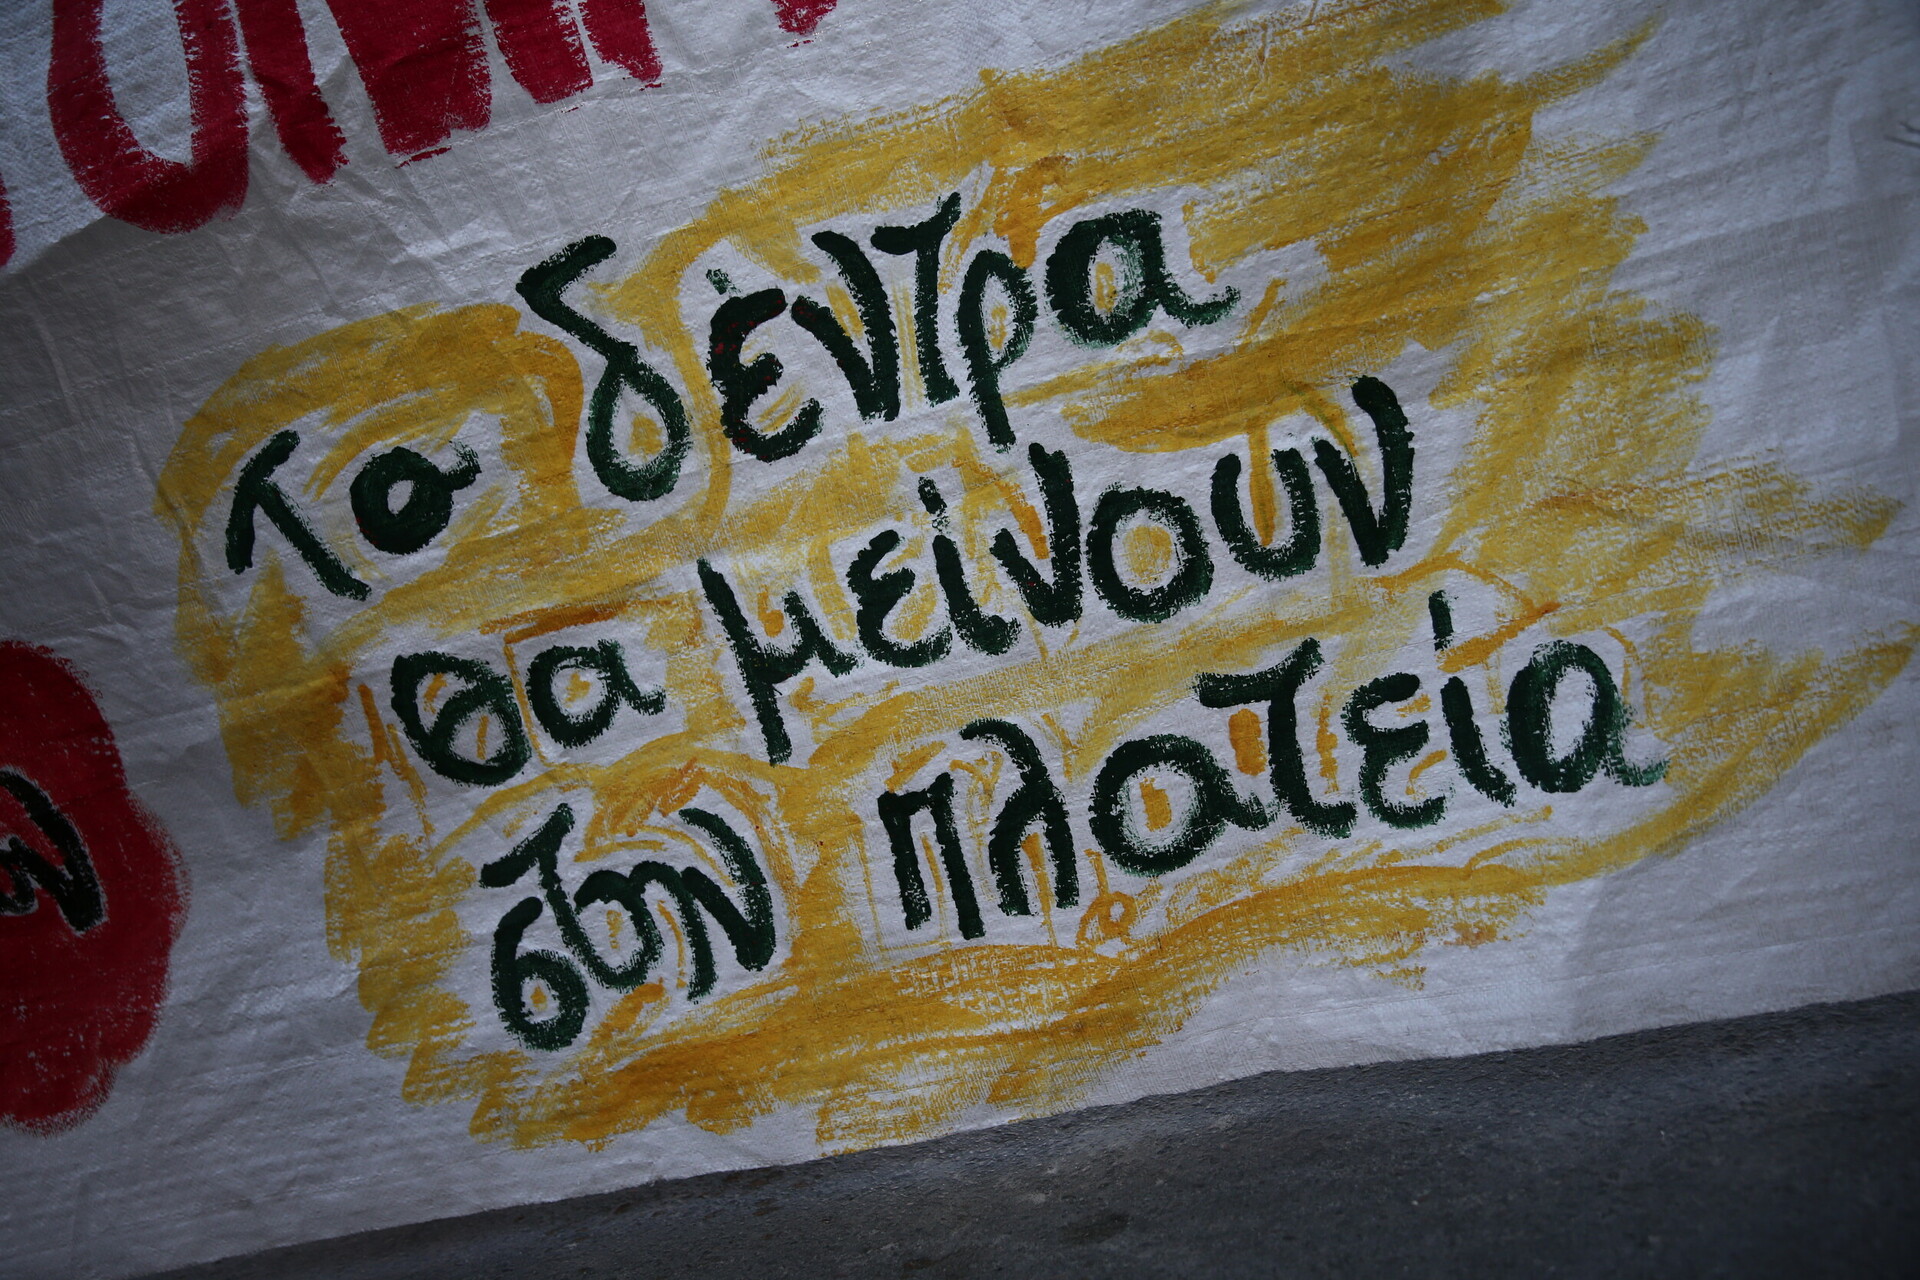 Τα δέντρα
θα μείνουν
στην πλατεία